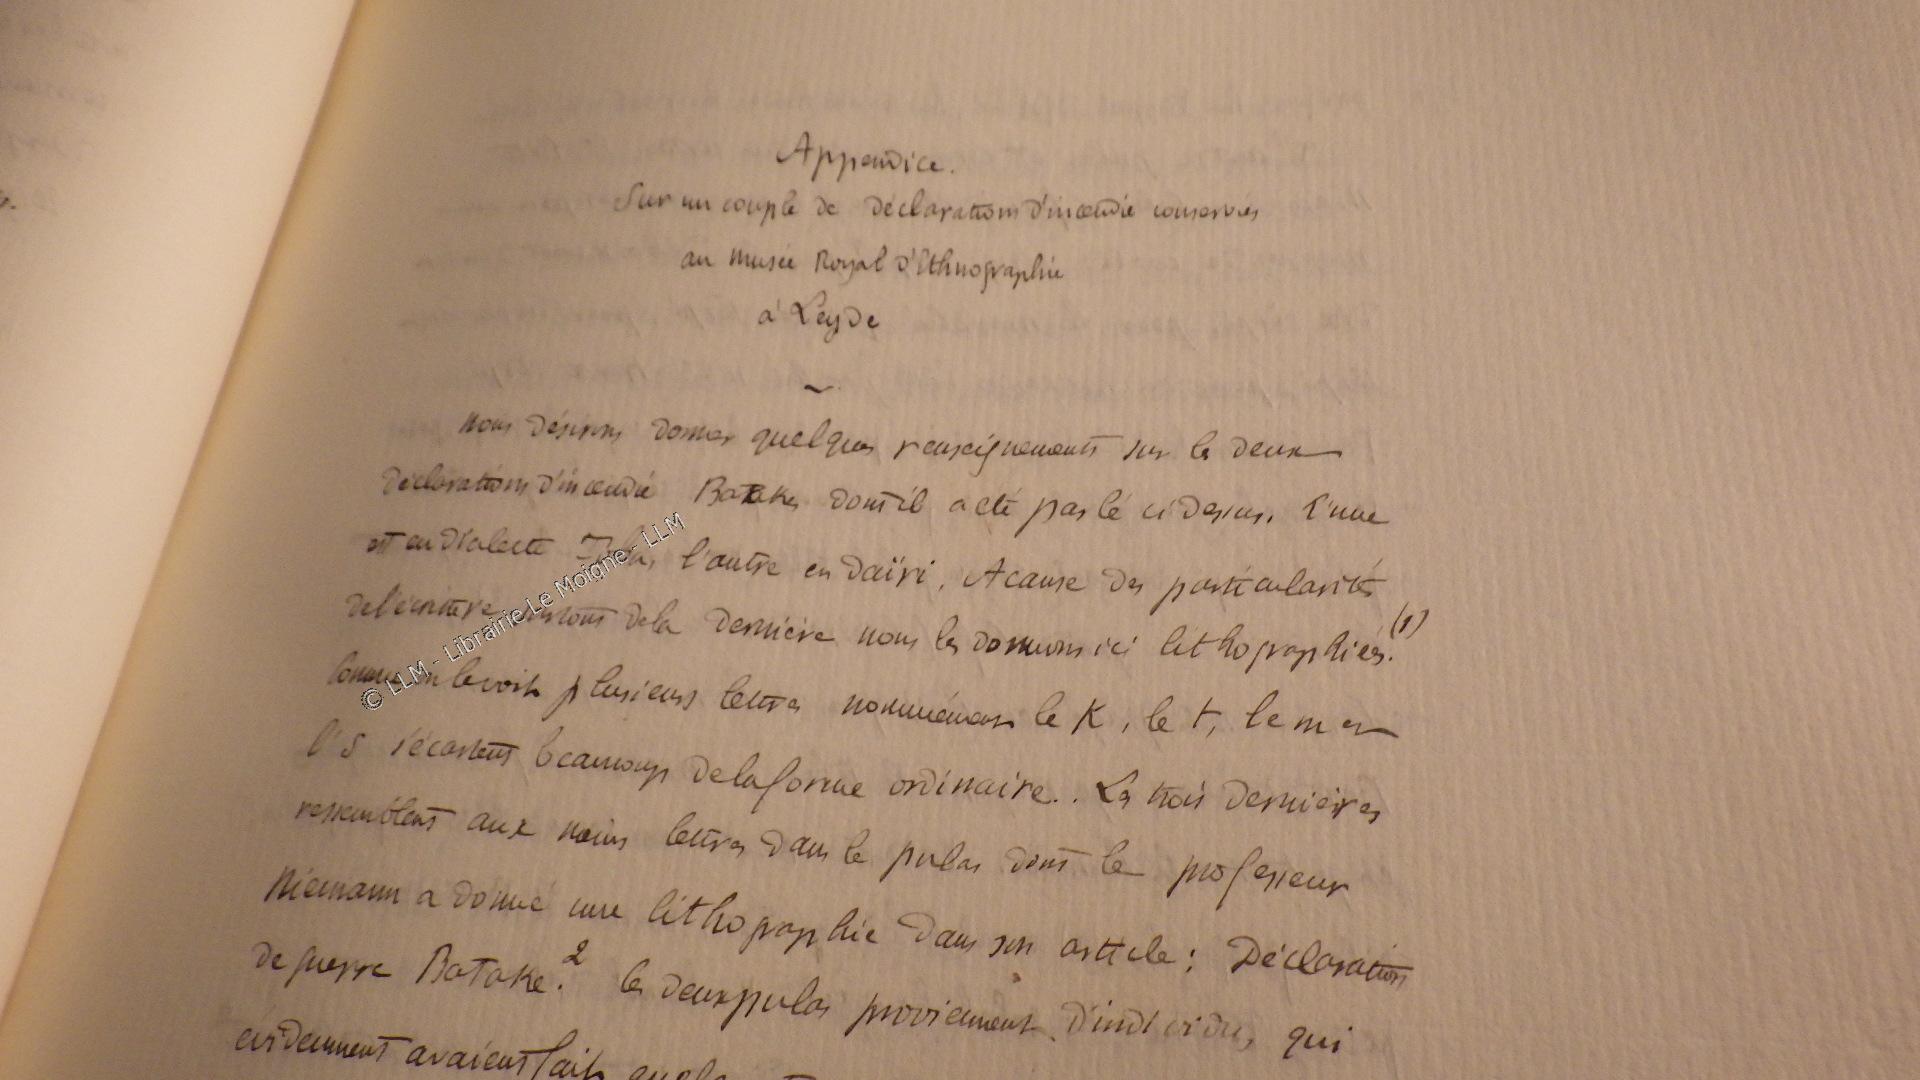 Appendice.
Sur un couple de déclarations d'incendie conservés
au musée Royal d'Ethnographie
à Leyde
~
Nous désirons donner quelques renseignements sur les deux
déclarations d'incendie Batakes dont il a été parlé ci dessus. L'une
est en dialecte Toba, l'autre en daïri. A cause des particularités
de l'écriture surtout de la dernière nous les donnons ici lithographiés.(1)
Comme on le voit plusieurs lettres nommément le K, le t, le m et
l's s'écartent beaucoup de la forme ordinaire.. Les trois dernières
ressemblent aux mêmes lettres dans le pulas dont le professeur
Niemann a donné une lithographie dans son article : Déclaration
de guerre Batake.2 les deux pulas proviennent d'individu, qui
évidemment avaient fait
© LLM - Librairie Le Moigne - LLM